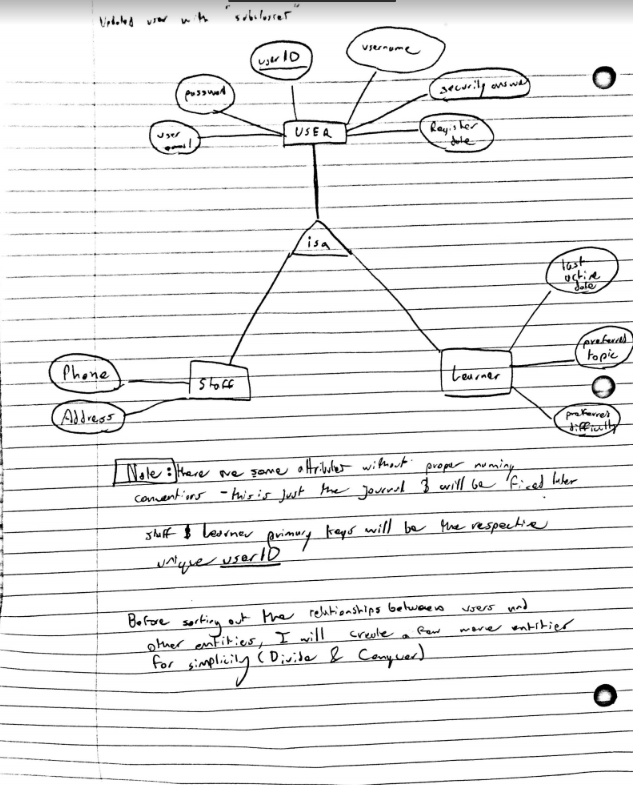 Updated user with "subclasses"
userID
username
password
security answer
user email
USER
Register date
isa
last active date
Phone
Staff
Learner
preferred topic
Address
preferred difficulty
Note: there are some attributes without proper naming
conventions - this is just the journal & will be fixed later
staff & Learner primary keys will be the respective
unique userID
Before sorting out the relationships between users and
other entities, I will create a few more entities
for simplicity (Divide & Conquer)